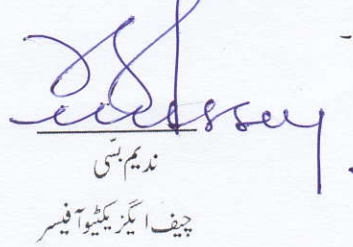 ندیم بسّی
چیف ایگزیکٹیو آفیسر